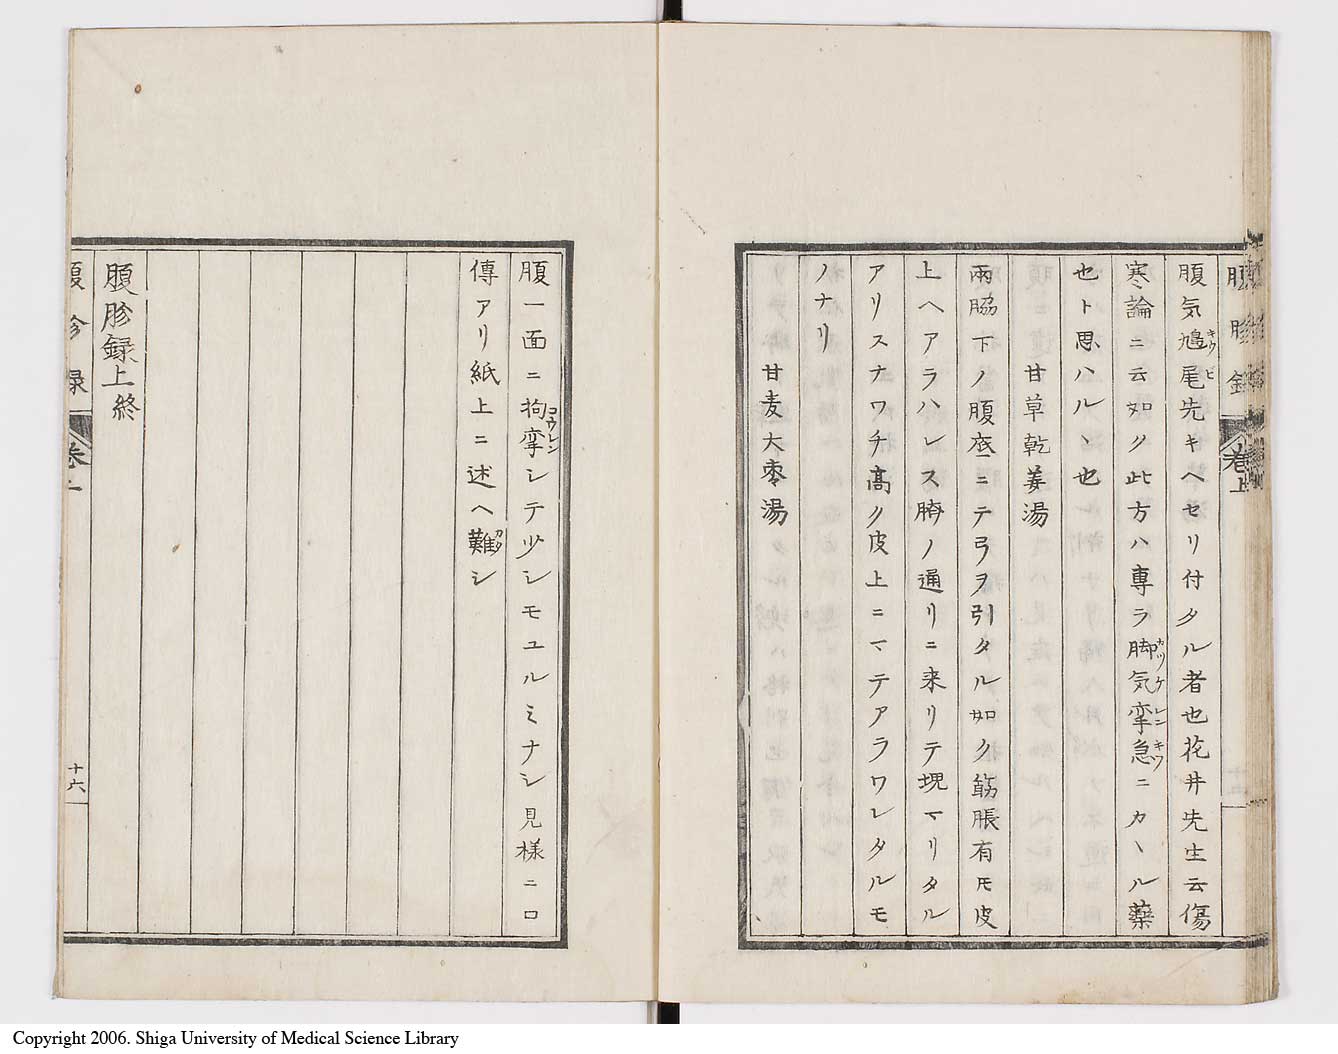 腹胗錄
卷上
腹気鳩尾先キヘセリ付タル者也花井先生云傷
キウビ
寒論ニ云如ク此方ハ専ラ脚気攣急ニカヽル藥
カツケレンキウ
也ト思ハルヽ也
甘草乾姜湯
兩脇下ノ腹底ニテ弓ヲ引タル如ク筋脹有モ皮
上ヘアラハレス臍ノ通リニ来リテ塊マリタル
アリスナワチ高ク皮上ニマテアラワレタルモ
ノナリ
甘麦大棗湯
腹一面ニ拘攣シテ少シモユルミナシ見様ニロ
コウレン
傳アリ紙上ニ述ヘ難シ
カタ
腹胗録上終
腹胗録
卷上
十六
Copyright 2006. Shiga University of Medical Science Library